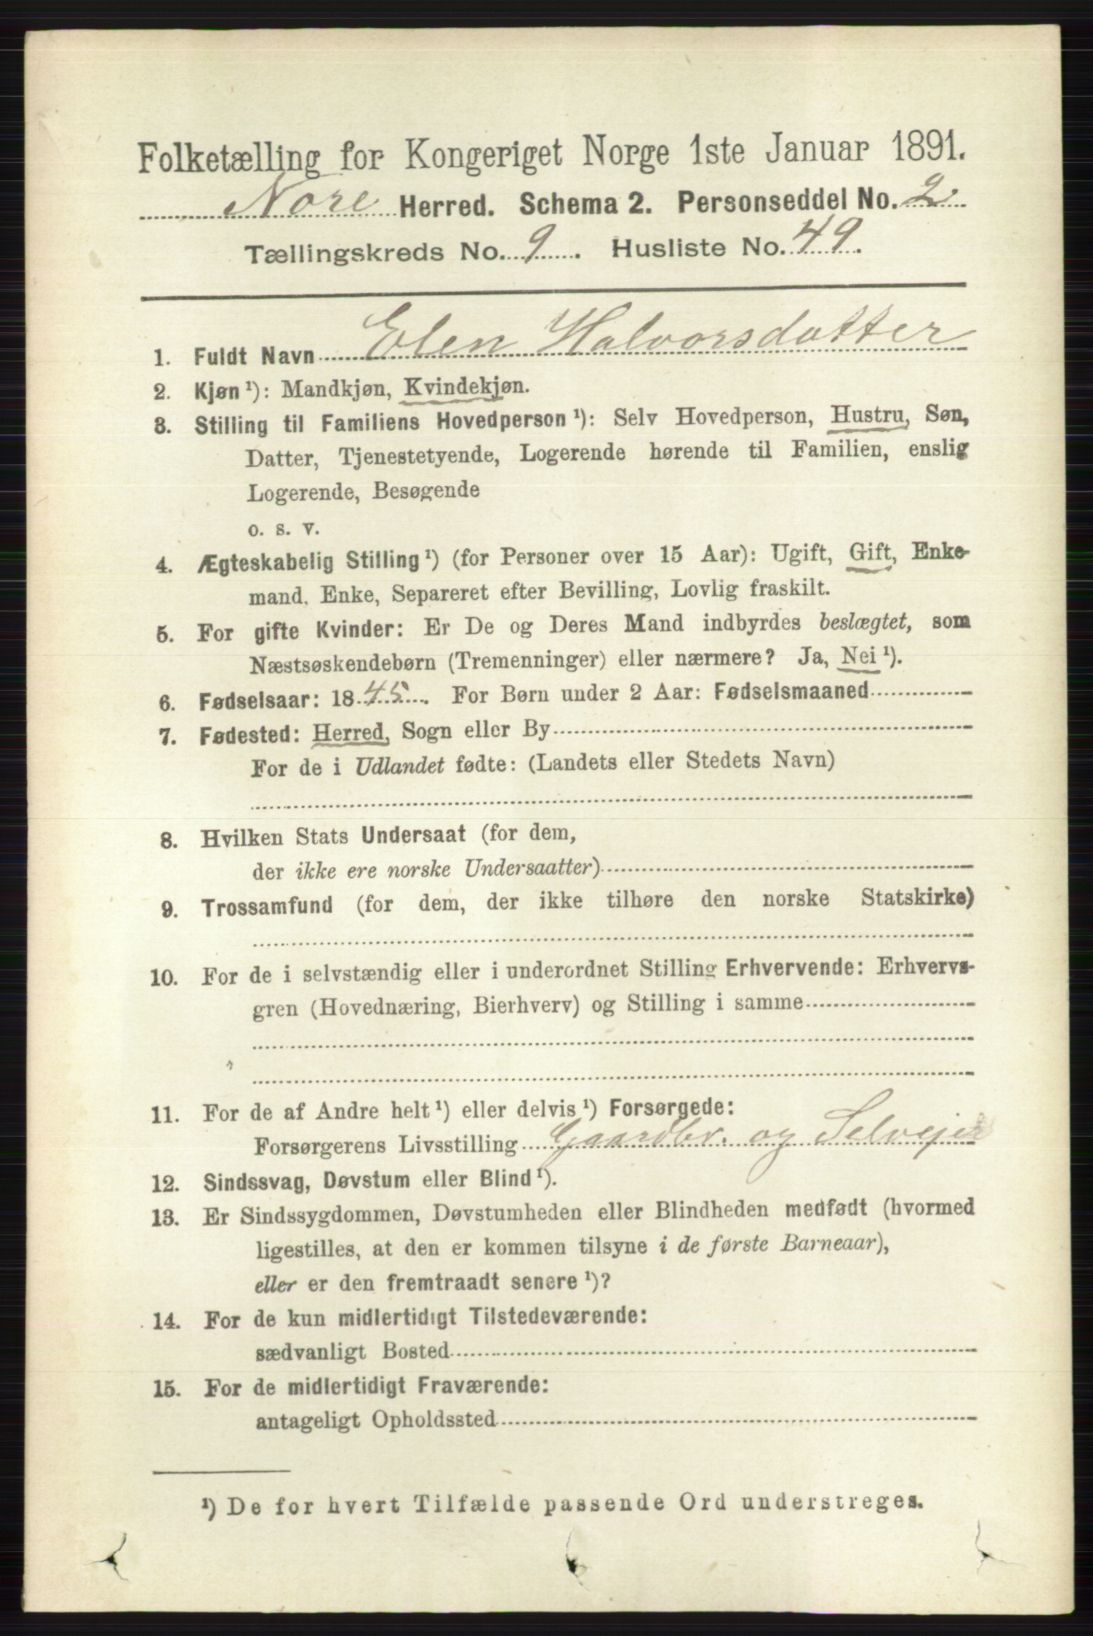 Folketælling for Kongeriget Norge 1ste Januar 1891.
Nore Herred. Schema 2. Personseddel No. 2
Tællingskreds No. 9. Husliste No. 49.
1. Fuldt Navn Elen Halvorsdatter
2. Kjøn¹): Mandkjøn, Kvindekjøn.
3. Stilling til Familiens Hovedperson¹): Selv Hovedperson, Hustru, Søn,
Datter, Tjenestetyende, Logerende hørende til Familien, enslig
Logerende, Besøgende
o. s. v.
4. Ægteskabelig Stilling¹) (for Personer over 15 Aar): Ugift, Gift, Enke-
mand, Enke, Separeret efter Bevilling, Lovlig fraskilt.
5. For gifte Kvinder: Er De og Deres Mand indbyrdes beslægtet, som
Næstsøskendebørn (Tremenninger) eller nærmere? Ja, Nei¹).
6. Fødselsaar: 1845. For Børn under 2 Aar: Fødselsmaaned
7. Fødested: Herred, Sogn eller By
For de i Udlandet fødte: (Landets eller Stedets Navn)
8. Hvilken Stats Undersaat (for dem,
der ikke ere norske Undersaatter)
9. Trossamfund (for dem, der ikke tilhøre den norske Statskirke)
10. For de i selvstændig eller i underordnet Stilling Erhvervende: Erhvervs-
gren (Hovednæring, Bierhverv) og Stilling i samme
11. For de af Andre helt¹) eller delvis¹) Forsørgede:
Forsørgerens Livsstilling Gaardbr. og Selvejer
12. Sindssvag, Døvstum eller Blind¹).
13. Er Sindssygdommen, Døvstumheden eller Blindheden medfødt (hvormed
ligestilles, at den er kommen tilsyne i de første Barneaar),
eller er den fremtraadt senere¹)?
14. For de kun midlertidigt Tilstedeværende:
sædvanligt Bosted
15. For de midlertidigt Fraværende:
antageligt Opholdssted
¹) De for hvert Tilfælde passende Ord understreges.